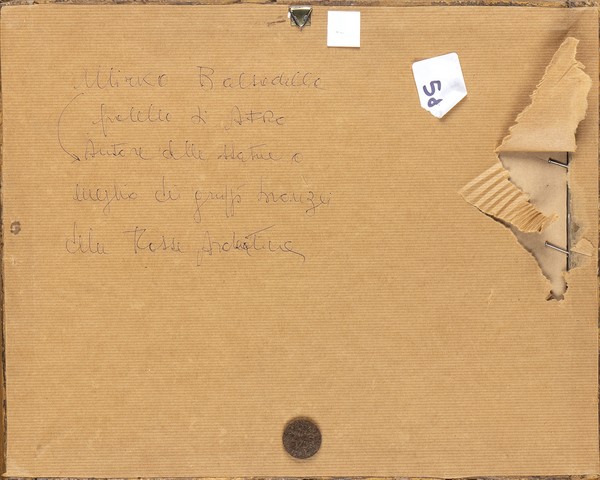 Mirko Basaldella
fratello di AFRO
Autore delle statue o
meglio dei gruppi bronzei
delle Fosse Ardeatine
5d